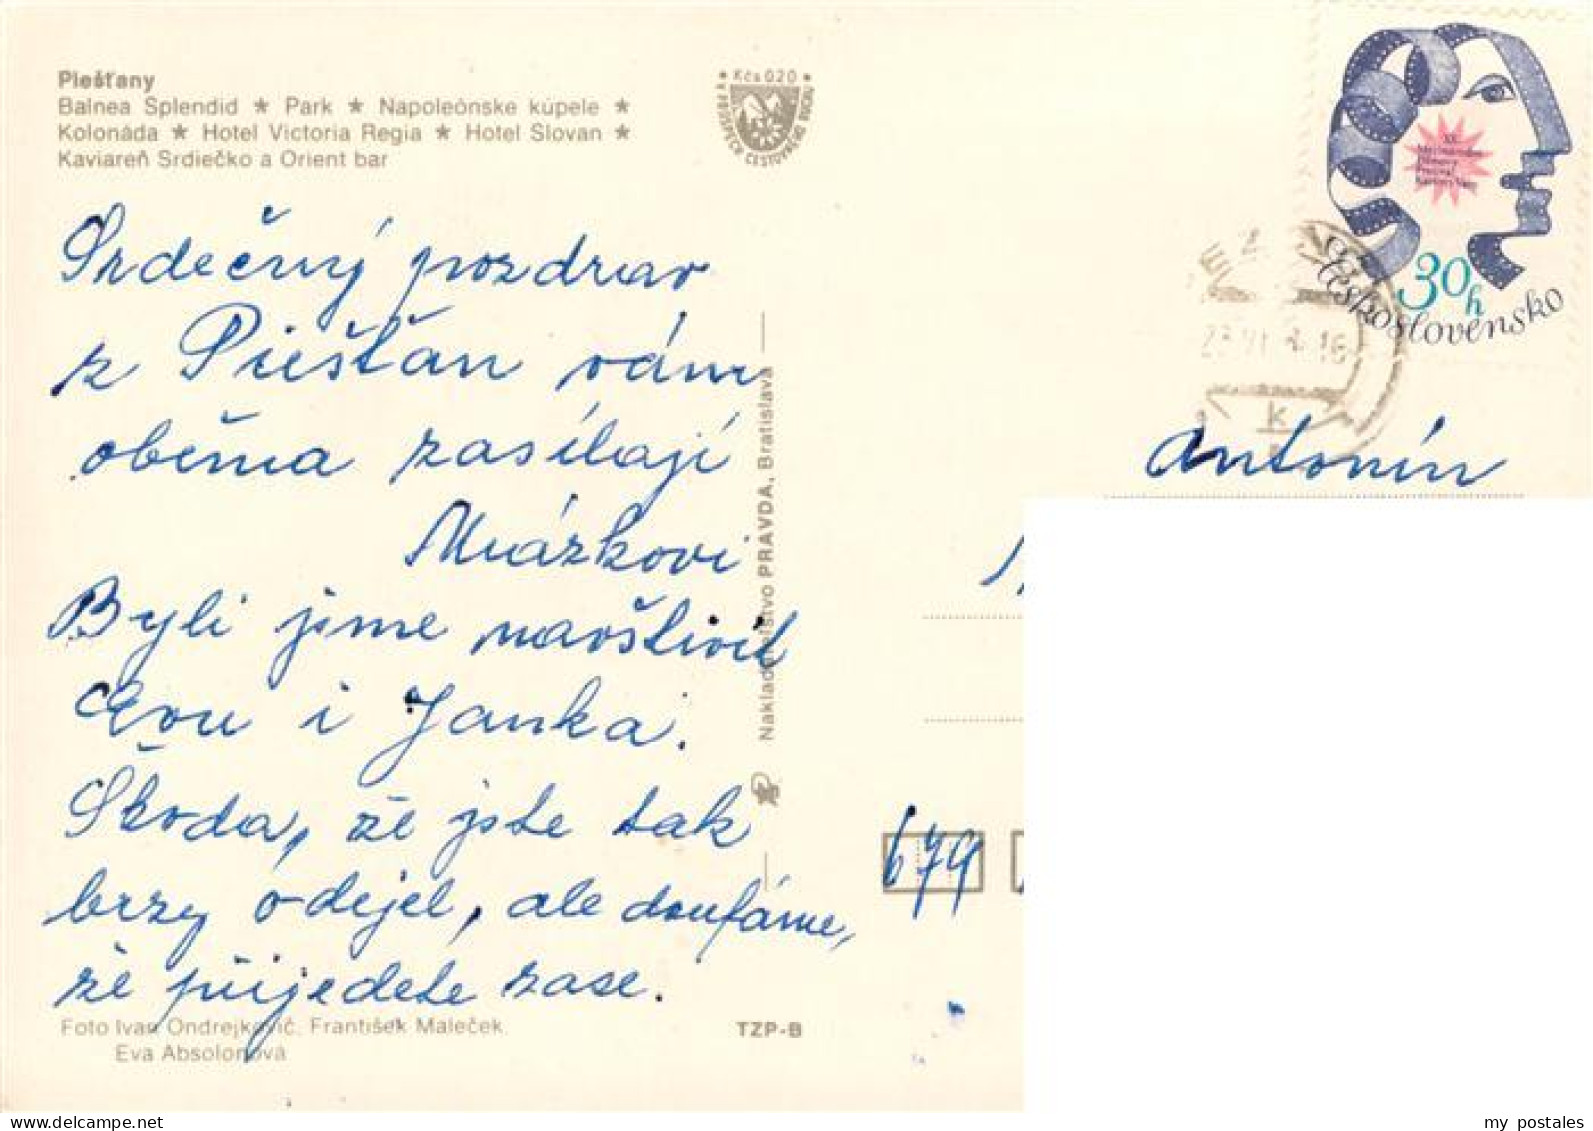 Piešťany
Balnea Splendid ★ Park ★ Napoleónske kúpele ★
Kolonáda ★ Hotel Victoria Regia ★ Hotel Slovan ★
Kaviareň Srdiečko a Orient bar
★ Kčs 0.20 ★
V PROSPECH CESTOVNÉHO RUCHU
30h
Československo
Srdečný pozdrav
z Piešťan vám
oběma zasílají
Mrázkovi
Byli jsme navštívit
Evu i Janka.
Škoda, že jste tak
brzy odejel, ale doufáme,
že přijedete zase.
Foto Ivan Ondrejkovič, František Maleček,
Eva Absolonová
TZP-B
Nakladateľstvo PRAVDA, Bratislava
Antonín
679
my postales